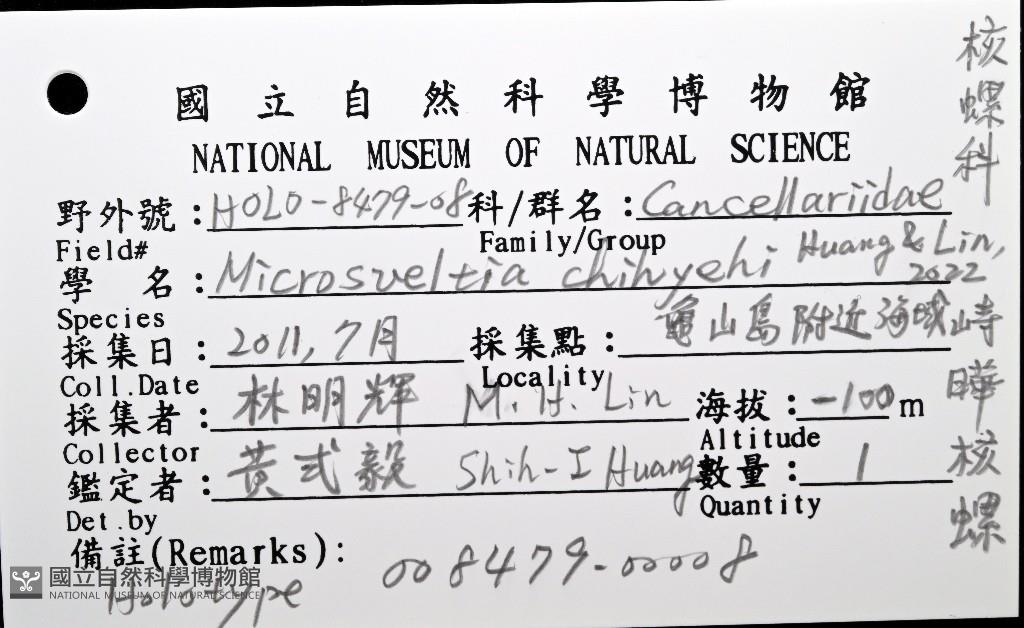 國立自然科學博物館
NATIONAL MUSEUM OF NATURAL SCIENCE
野外號：HOLO-8479-08 科/群名：Cancellariidae
Field# Family/Group
學 名：Microsveltia chihyehi Huang & Lin, 2022
Species
採集日：2011, 7月 採集點：龜山島附近海域
Coll.Date Locality
採集者：林明輝 M. H. Lin 海拔：-100 m
Collector Altitude
鑑定者：黃式毅 Shih-I Huang 數量：1
Det.by Quantity
備註(Remarks)： 008479-00008
Holotype
核螺科
崎曄核螺
國立自然科學博物館
NATIONAL MUSEUM OF NATURAL SCIENCE